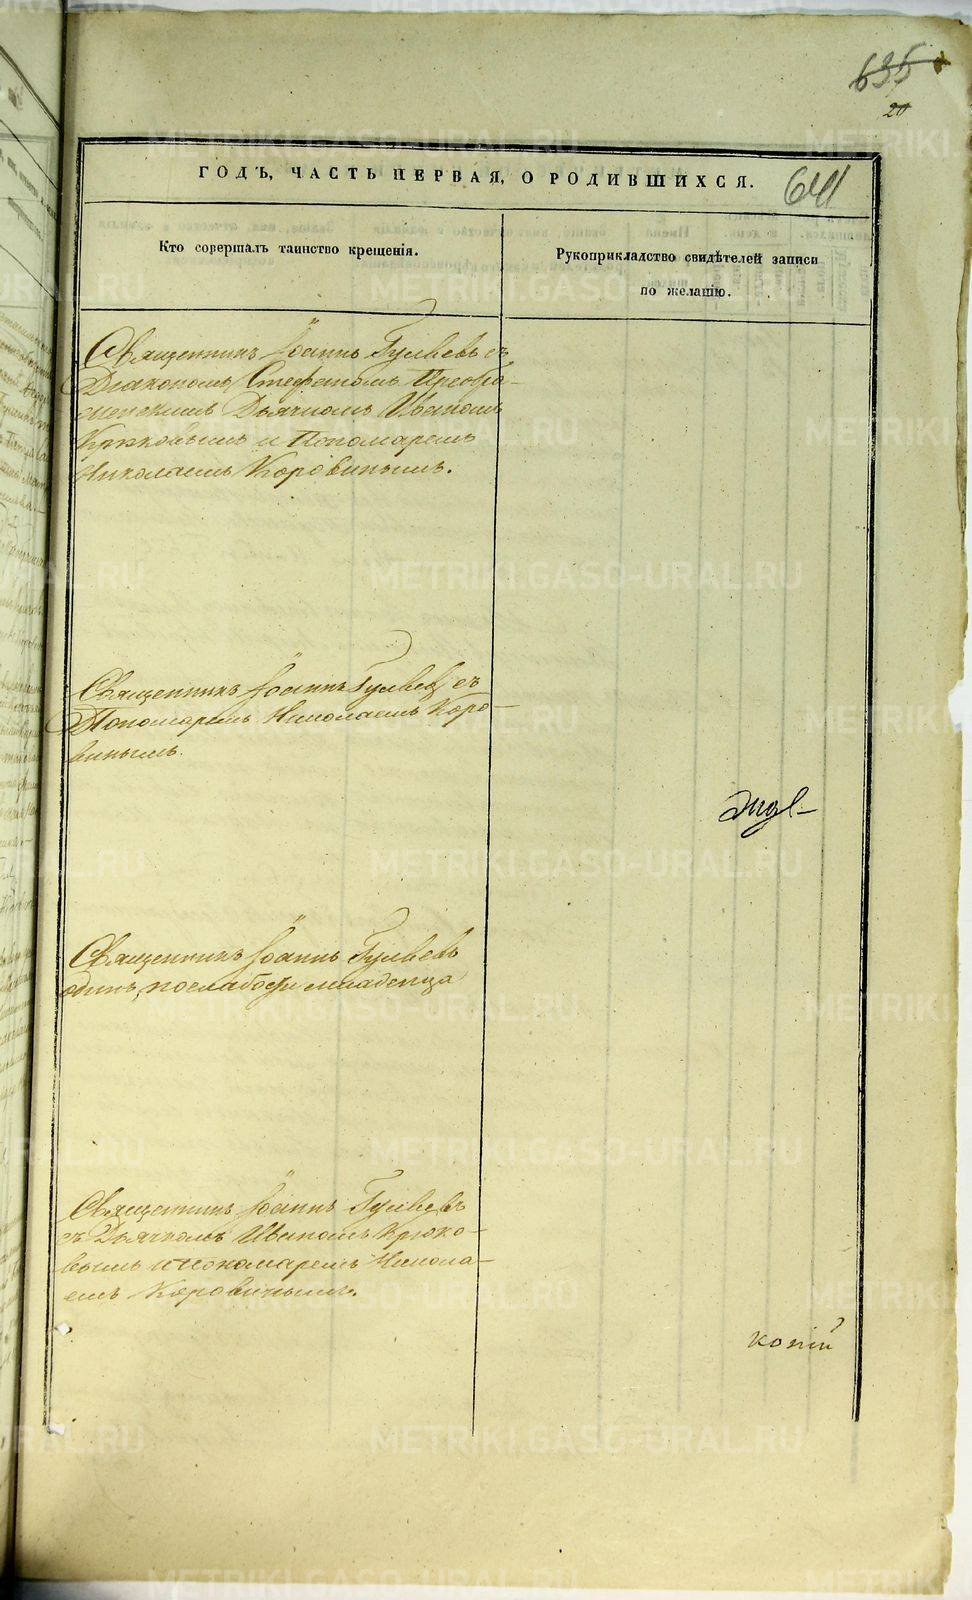 635
20
641
ГОДЪ, ЧАСТЬ ПЕРВАЯ, О РОДИВШИХСЯ.
Кто совершалъ таинство крещенія.
Рукоприкладство свидѣтелей записи
по желанію.
Священникъ Іоаннъ Гуляевъ съ
Діакономъ Стефаномъ Преобра-
женскимъ Дьячкомъ Иваномъ
Крюковымъ и Пономаремъ
Николаемъ Коровинымъ.
Священникъ Іоаннъ Гуляевъ съ
Пономаремъ Николаемъ Коро-
винымъ.
Священникъ Іоаннъ Гуляевъ
одинъ, по слабости младенца
Священникъ Іоаннъ Гуляевъ
съ Дьячкомъ Иваномъ Крюко-
вымъ и Пономаремъ Никола-
емъ Коровинымъ.
копій
METRIKI.GASO-URAL.RU